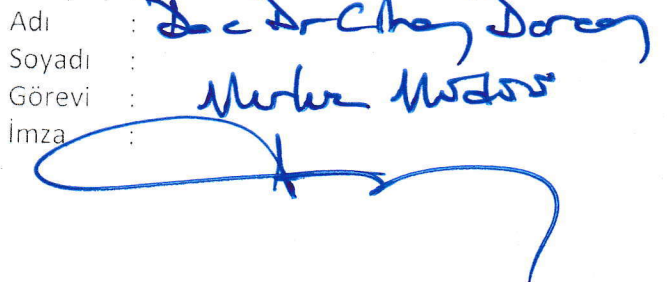 Adı : Doc Dr Cihan Dorcan
Soyadı :
Görevi : Merkez Müdürü
İmza :